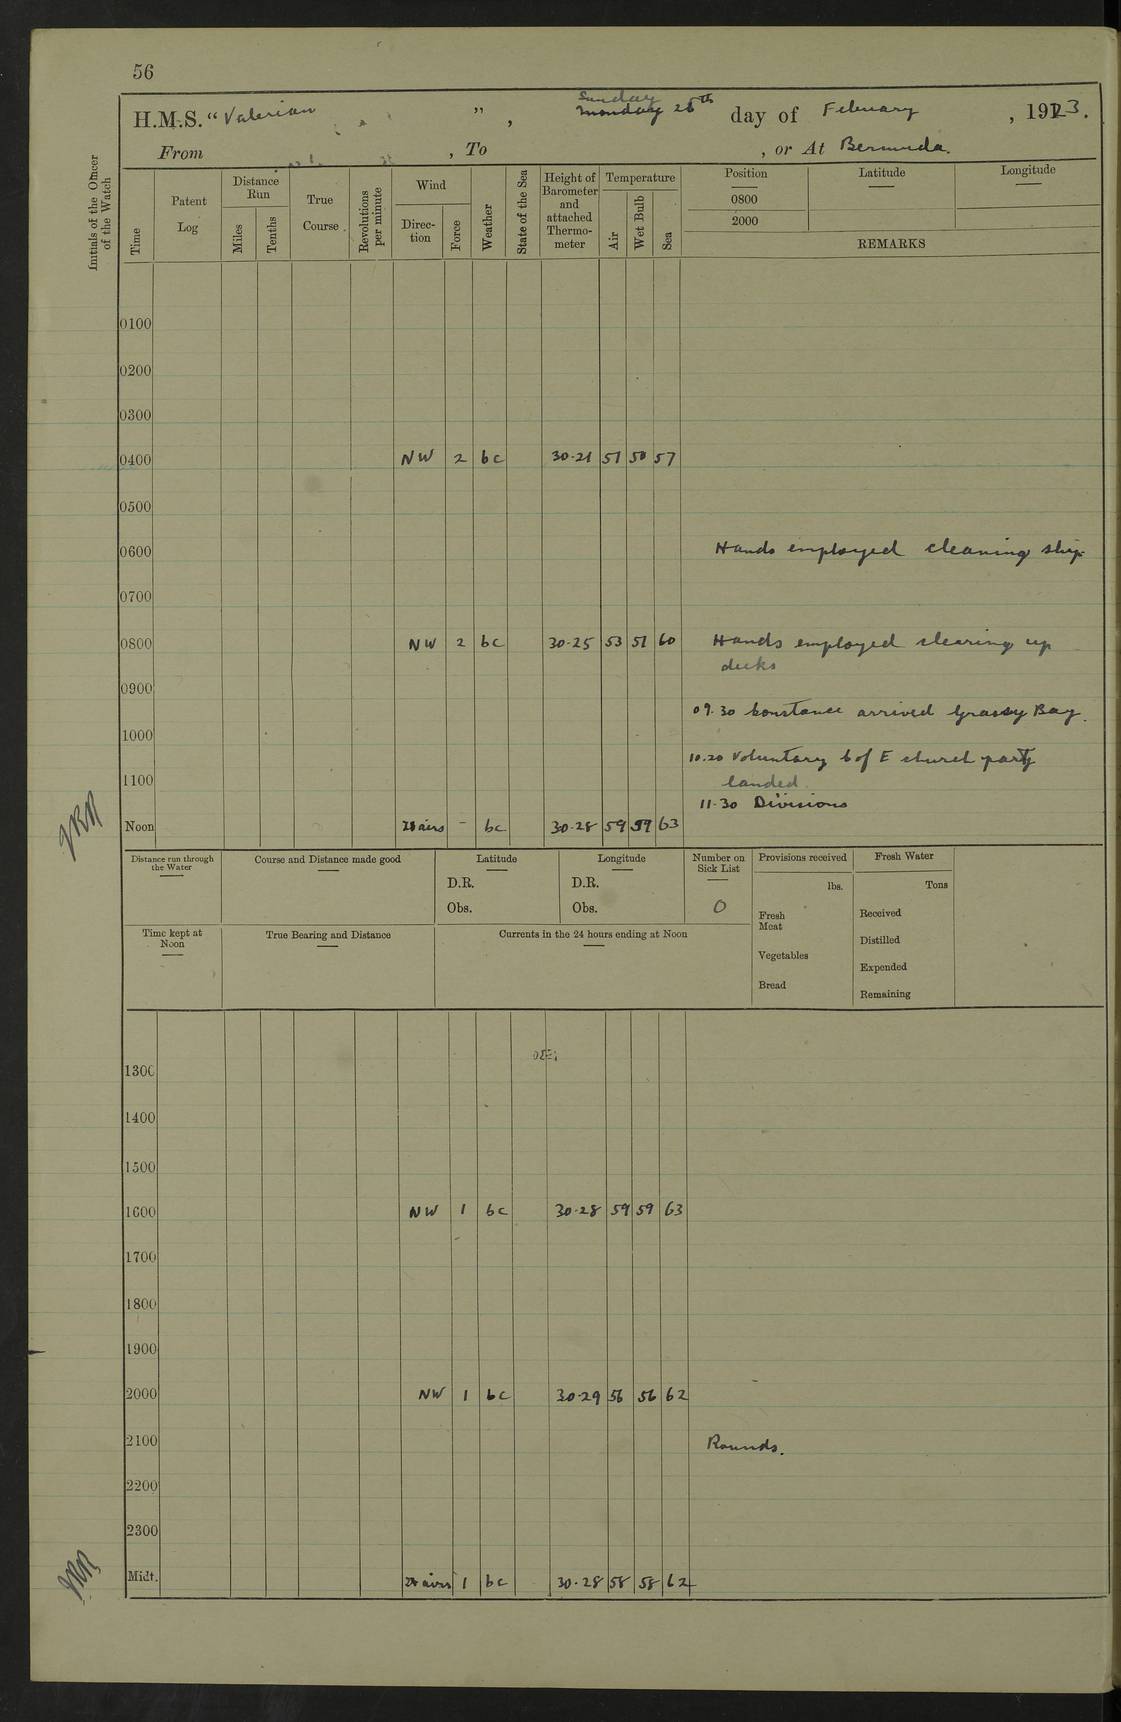 56
H.M.S. "Valerian ", Sunday Monday 25th day of February, 1923.
From , To , or At Bermuda.
Initials of the Officer of the Watch
Time
Patent Log
Distance Run
Miles
Tenths
True Course
Revolutions per minute
Wind
Direction
Force
Weather
State of the Sea
Height of Barometer and attached Thermometer
Temperature
Air
Wet Bulb
Sea
Position Latitude Longitude
0800
2000
REMARKS
0100
0200
0300
0400 NW 2 bc 30.21 51 50 57
0500
0600 Hands employed cleaning ship
0700
0800 NW 2 bc 30.25 53 51 60 Hands employed clearing up
decks
0900
09.30 Constance arrived Grassy Bay.
1000
10.20 Voluntary C of E church party
landed.
1100
11.30 Divisions
Noon airs - bc 30.28 59 59 63
JRR
Distance run through the Water
Course and Distance made good
Latitude
D.R.
Obs.
Longitude
D.R.
Obs.
Number on Sick List
0
Provisions received
lbs.
Fresh Meat
Vegetables
Bread
Fresh Water
Tons
Received
Distilled
Expended
Remaining
Time kept at Noon
True Bearing and Distance
Currents in the 24 hours ending at Noon
1300
1400
1500
1600 NW 1 bc 30.28 59 59 63
1700
1800
1900
2000 NW 1 bc 30.29 56 56 62
2100 Rounds.
2200
2300
Midt. airs 1 bc 30.28 58 58 62
JRR